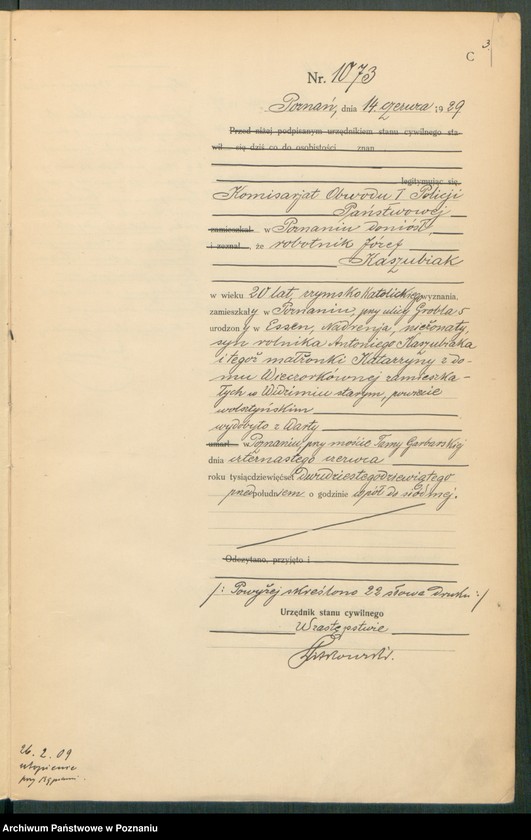 C
3.
Nr. 1073
Poznań, dnia 14. czerwca 1929
Przed niżej podpisanym urzędnikiem stanu cywilnego sta-
wił się dziś co do osobistości znan
legitymując się
Komisarjat Obwodu I Policji
Państwowej
zamieszkał w Poznaniu doniósł,
i zeznał, że robotnik Józef
Kaszubiak
w wieku 20 lat, rzymsko katolickiego wyznania,
zamieszkały w Poznaniu, przy ulicy Grobla 5
urodzony w Essen, Nadrenja, nieżonaty,
syn rolnika Antoniego Kaszubiaka
i tegoż małżonki Katarzyny z do-
mu Wieczorkównej zamieszka-
łych w Widzimiu starym, powiecie
wolsztyńskim
wydobyto z Warty
umarł w Poznaniu, przy moście Tamy Garbarskiej
dnia czternastego czerwca
roku tysiącdziewięćset dwudziestegodziewiątego
przedpołudniem o godzinie wpół do siódmej.
Odczytano, przyjęto i
/: Powyżej skreślono 22 słowa druku :/
Urzędnik stanu cywilnego
W zastępstwie
26. 2. 09
utopienie
przy
Archiwum Państwowe w Poznaniu